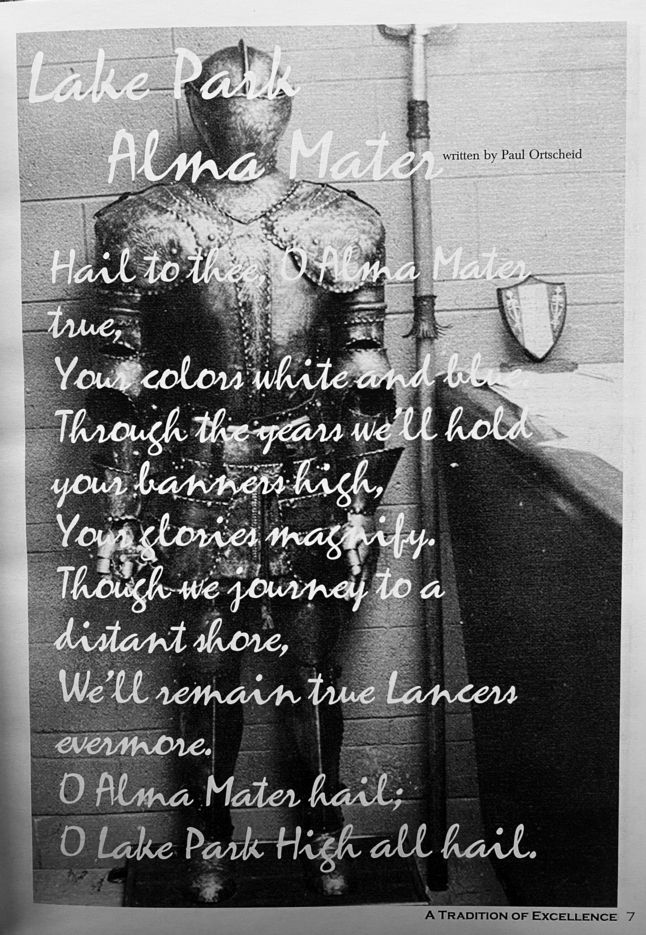 Lake Park
Alma Mater
written by Paul Ortscheid
Hail to thee, O Alma Mater
true,
Your colors white and blue.
Through the years we'll hold
your banners high,
Your glories magnify.
Though we journey to a
distant shore,
We'll remain true Lancers
evermore.
O Alma Mater hail;
O Lake Park High all hail.
A TRADITION OF EXCELLENCE 7